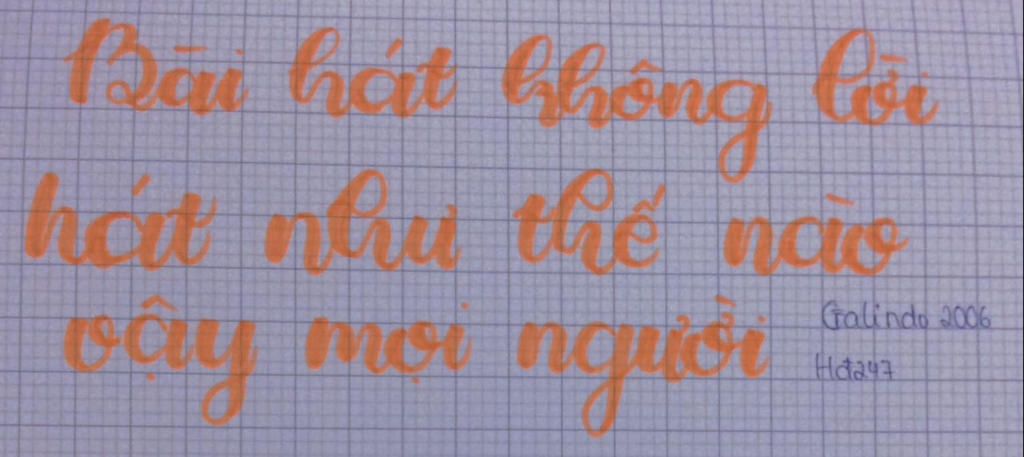 Bài hát không lời
hát như thế nào
vậy mọi người
Galindo 2006
Hd247